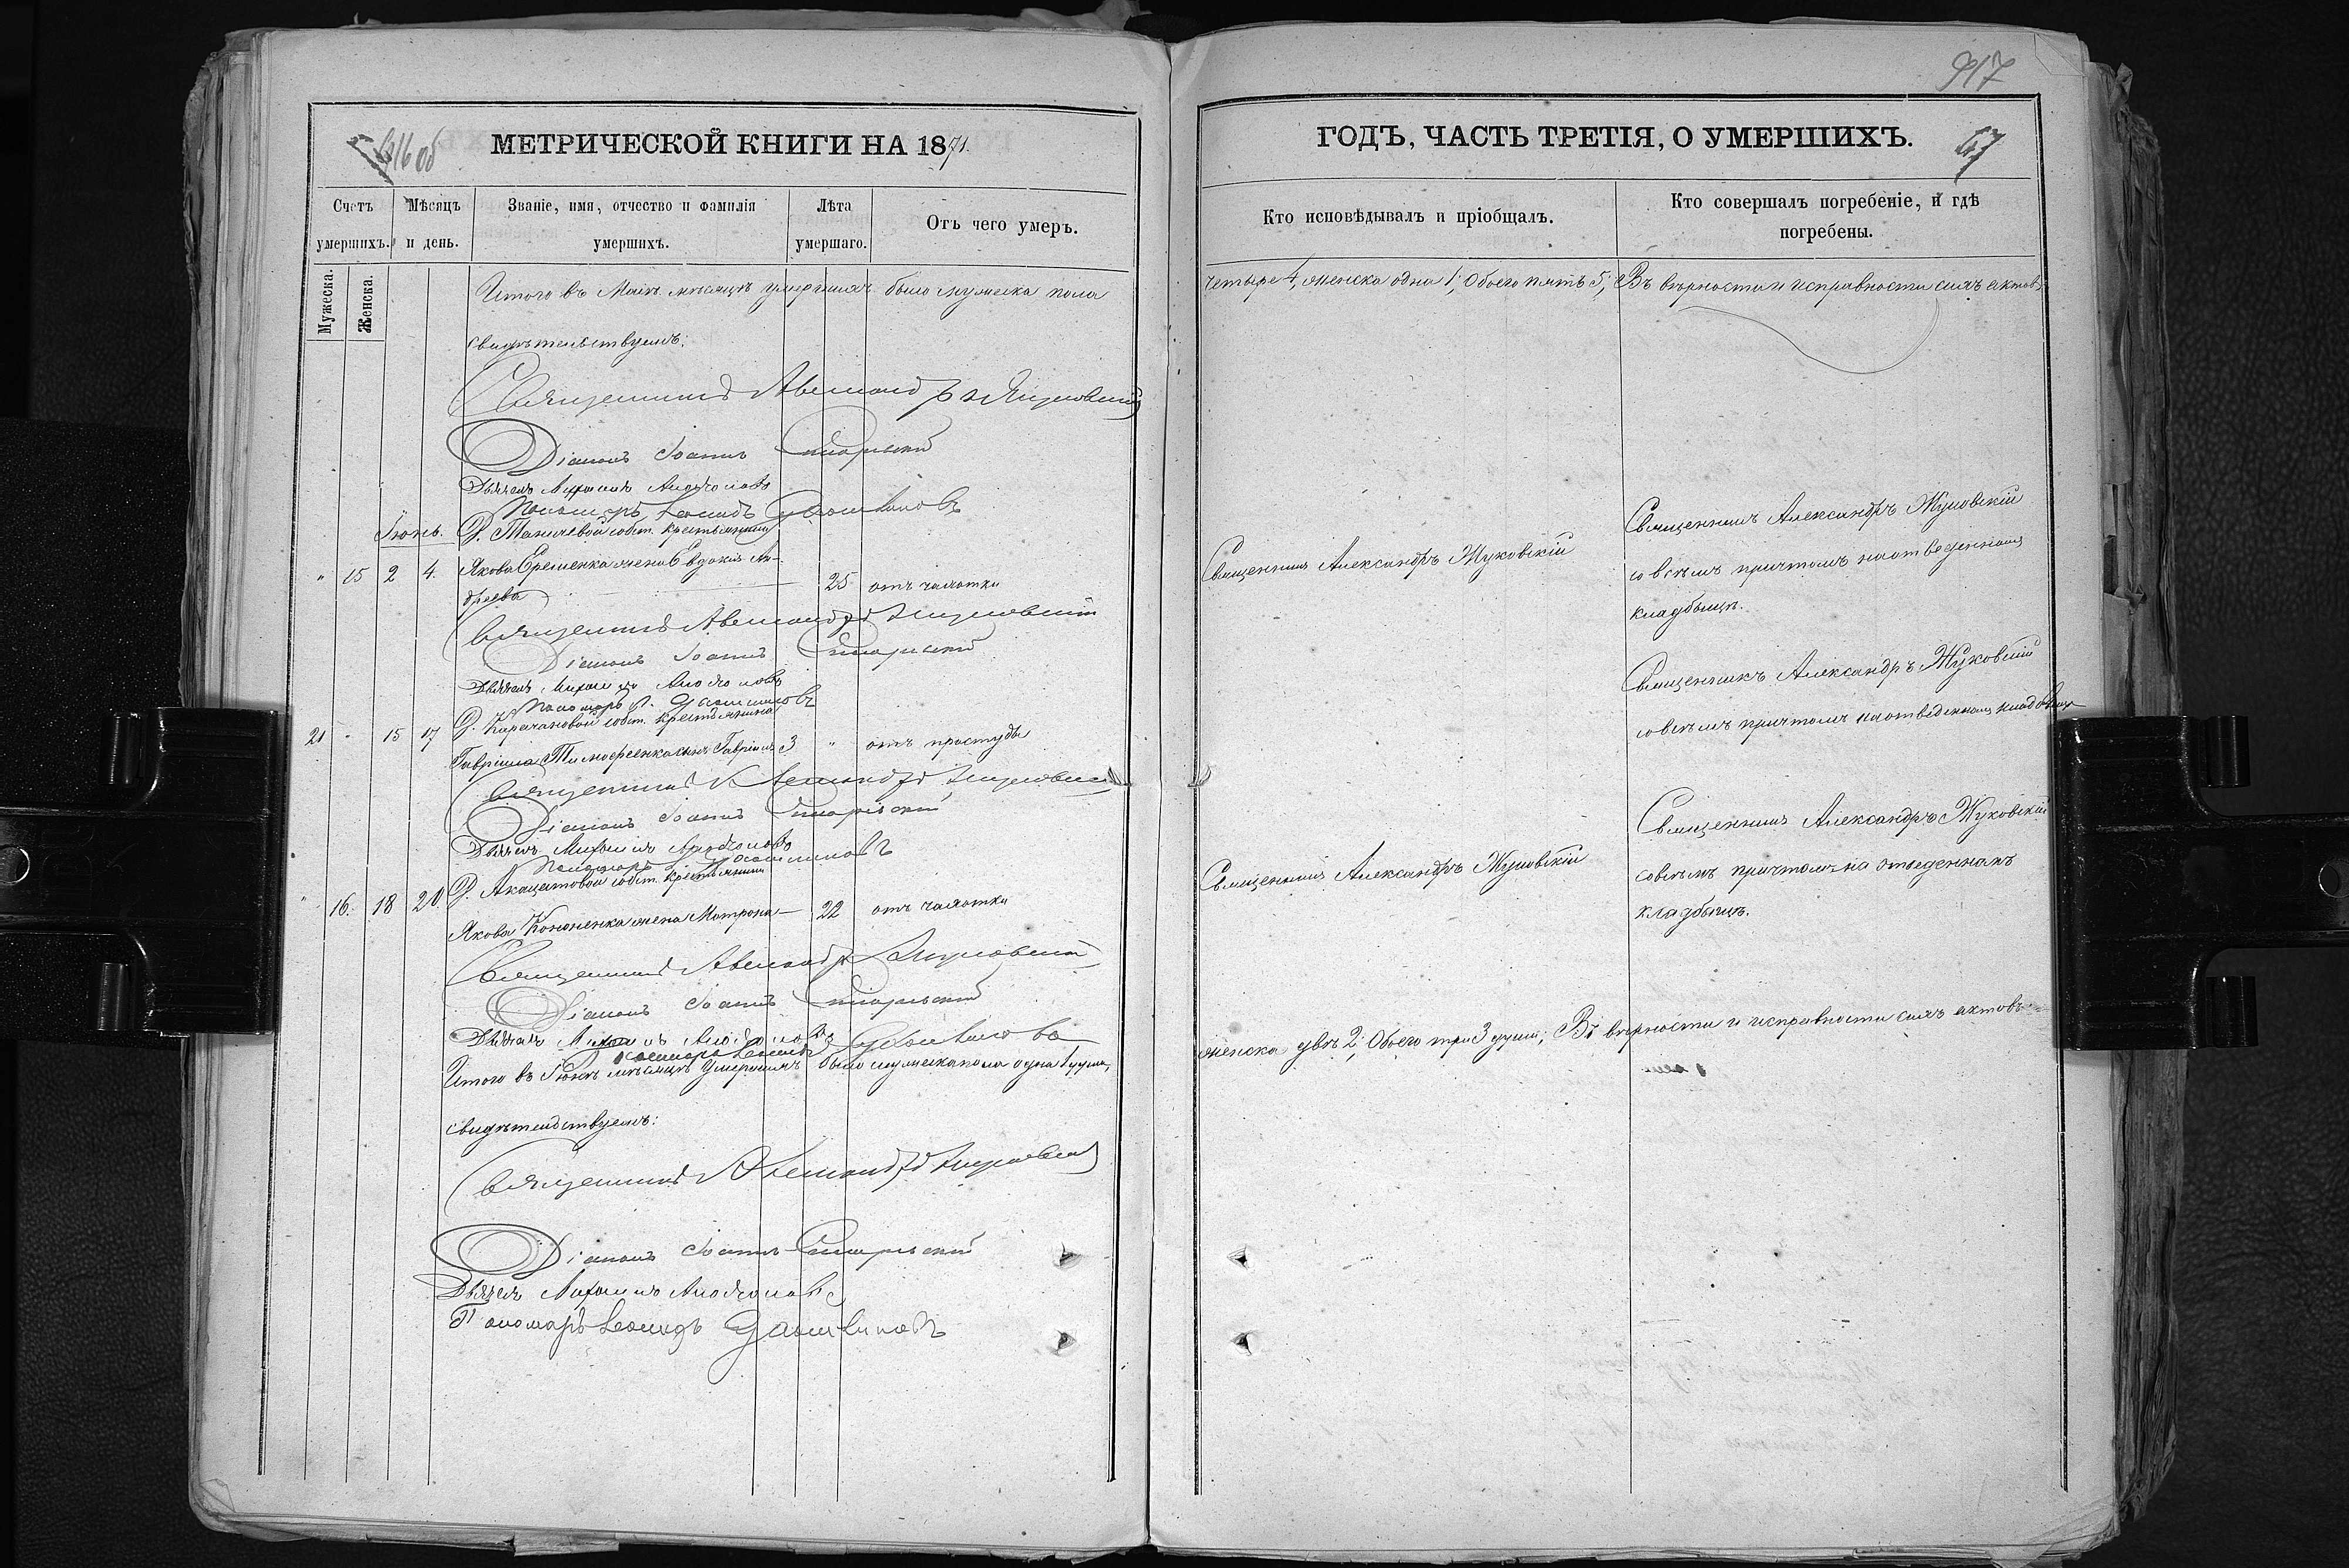 917
916 об
МЕТРИЧЕСКОЙ КНИГИ НА 1871.
ГОДЪ, ЧАСТЬ ТРЕТІЯ, О УМЕРШИХЪ.
47
Счетъ умершихъ.
Мужеска.
Женска.
Мѣсяцъ и день.
Званіе, имя, отчество и фамилія умершихъ.
Лѣта умершаго.
Отъ чего умеръ.
Кто исповѣдывалъ и пріобщалъ.
Кто совершалъ погребеніе, и гдѣ погребены.
Итого въ Маіѣ мѣсяцѣ умершихъ было мужеска пола четыре 4, женска одна 1; Обоего пять 5; Въ вѣрности и исправности сихъ актовъ
свидѣтельствуемъ:
Священникъ Александръ Жуковскій
Діаконъ Іоаннъ
Дьячекъ Михаилъ
Пономарь Леонидъ
Іюнь.
" 15 2 4.
Д. Таничевой собст. крестьянина
Якова Еременка жена Евдокія Ан-
дреева
25 отъ чахотки
Священникъ Александръ Жуковскій
Священникъ Александръ Жуковскій
со всѣмъ причтомъ на отведенномъ
кладбищѣ.
Священникъ Александръ Жуковскій
Діаконъ Іоаннъ
Дьячекъ Михаилъ
Пономарь Л.
21 " 15 17
Д. Карачановой собст. крестьянина
Гавріила Тимофеенка сынъ Гавріилъ 3 " отъ простуды
Священникъ Александръ Жуковскій
со всѣмъ причтомъ на отведенномъ кладбищѣ
Священникъ Александръ Жуковскій
Діаконъ Іоаннъ
Дьячекъ Михаилъ
Пономарь
" 16. 18 20
Д. собст. крестьянина
Якова Кононенка жена Матрона — 22 отъ чахотки
Священникъ Александръ Жуковскій
Священникъ Александръ Жуковскій
со всѣмъ причтомъ на отведенномъ
кладбищѣ.
Священникъ Александръ Жуковскій
Діаконъ Іоаннъ
Дьячекъ Михаилъ
Пономарь Леонидъ
Итого въ Іюнѣ мѣсяцѣ умершихъ было мужеска пола одна 1 душа, женска двѣ 2; Обоего три 3 души; Въ вѣрности и исправности сихъ актовъ
свидѣтельствуемъ:
Священникъ Александръ Жуковскій
Діаконъ Іоаннъ
Дьячекъ Михаилъ
Пономарь Леонидъ